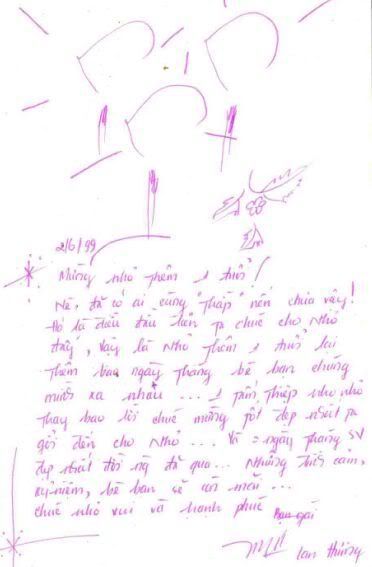 2/6/99
Mừng nhỏ thêm 1 tuổi!
Nè, đã có ai cùng "thắp" nến chưa vậy!
Đó là điều đầu tiên ta chúc cho Nhỏ
đấy, vậy là Nhỏ thêm 1 tuổi lại
thêm bao ngày tháng bè bạn chúng
mình xa nhau ... 1 tấm thiệp nho nhỏ
thay bao lời chúc mừng tốt đẹp nhất ta
gởi đến cho Nhỏ ... Vì ngày tháng SV
đẹp nhất đời ng đã qua ... Nhưng tình cảm,
kỷ niệm, bè bạn sẽ còn mãi ...
chúc nhỏ vui và hạnh phúc
Bạn gái
Lan thương